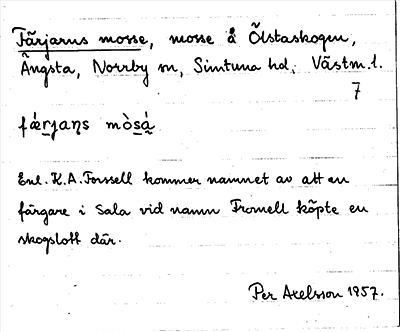 Färjarns mosse, mosse å Ölstaskogen,
Ängsta, Norrby sn, Simtuna hd, Västm. l.
7
fǽrjaṇs mòsa̱
Enl. K.A. Forssell kommer namnet av att en
färgare i Sala vid namn Fromell köpte en
skogslott där.
Per Axelsson 1957.